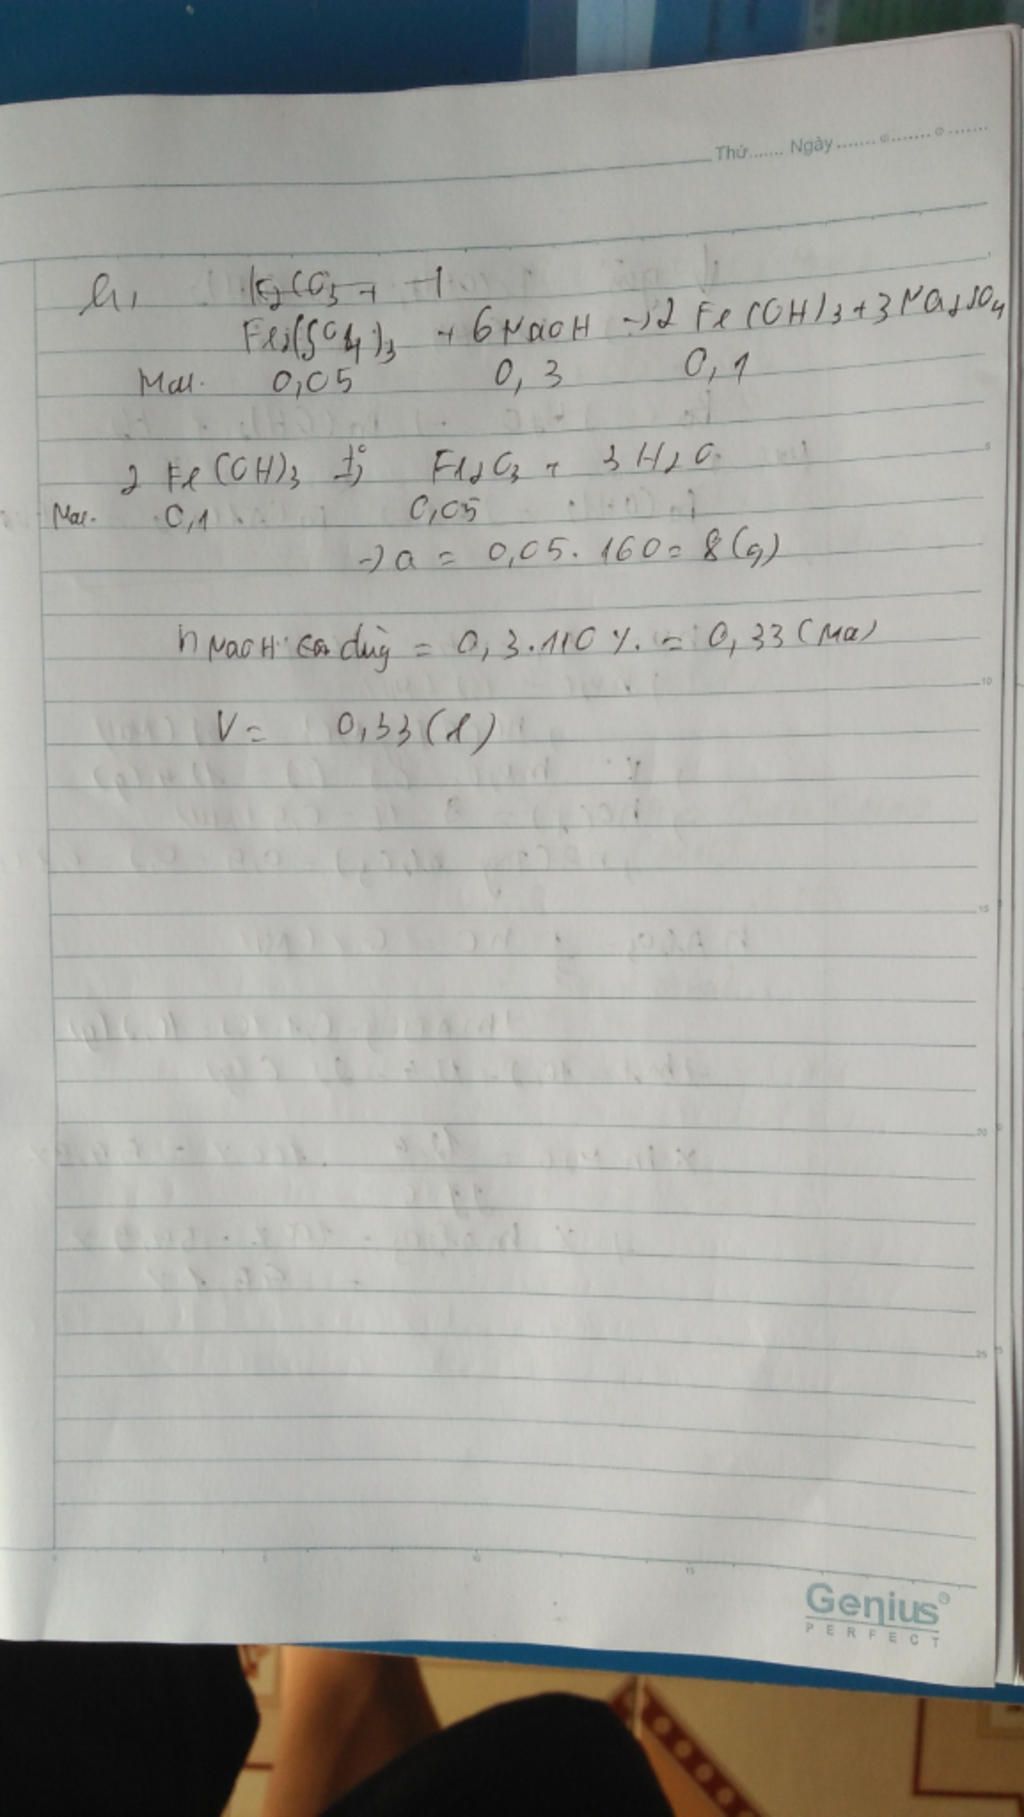 Thứ....... Ngày
K2CO3 +
Fe2(SO4)3 + 6NaOH → 2 Fe(OH)3 + 3Na2SO4
Mol. 0,05 0,3 0,1
2 Fe(OH)3 t° Fe2O3 + 3H2O
Mol. 0,1 0,05
→ a = 0,05. 160 = 8(g)
n NaOH cần dùng = 0,3.110%. = 0,33 (Mol)
V = 0,33(l)
5
10
15
20
25
0 5 10 15
Genius
PERFECT